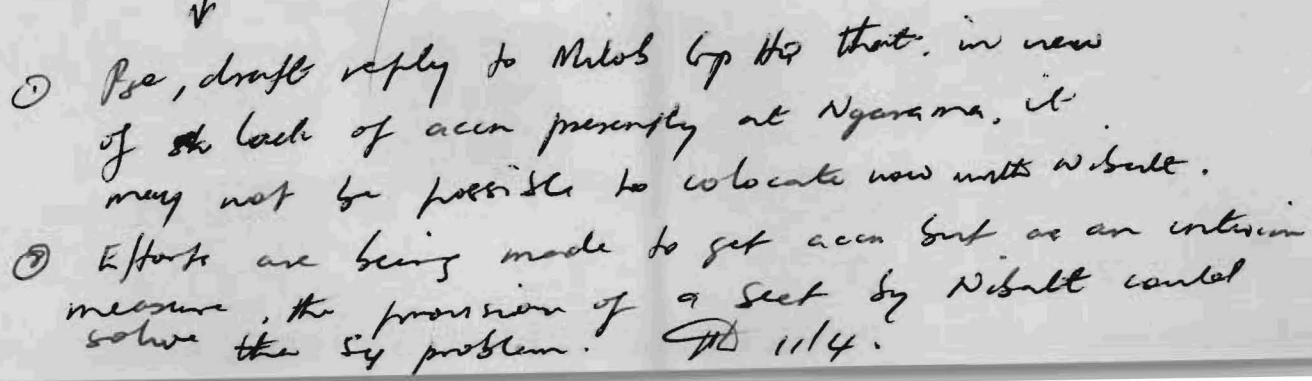 ① Pse, draft reply to Milob Gp HQ that, in view
of lack of accn presently at Ngarama, it
may not be possible to colocate now with Nibatt.
② Efforts are being made to get accn but as an interim
measure, the provision of a sect by Nibatt could
solve the sy problem. 11/4.